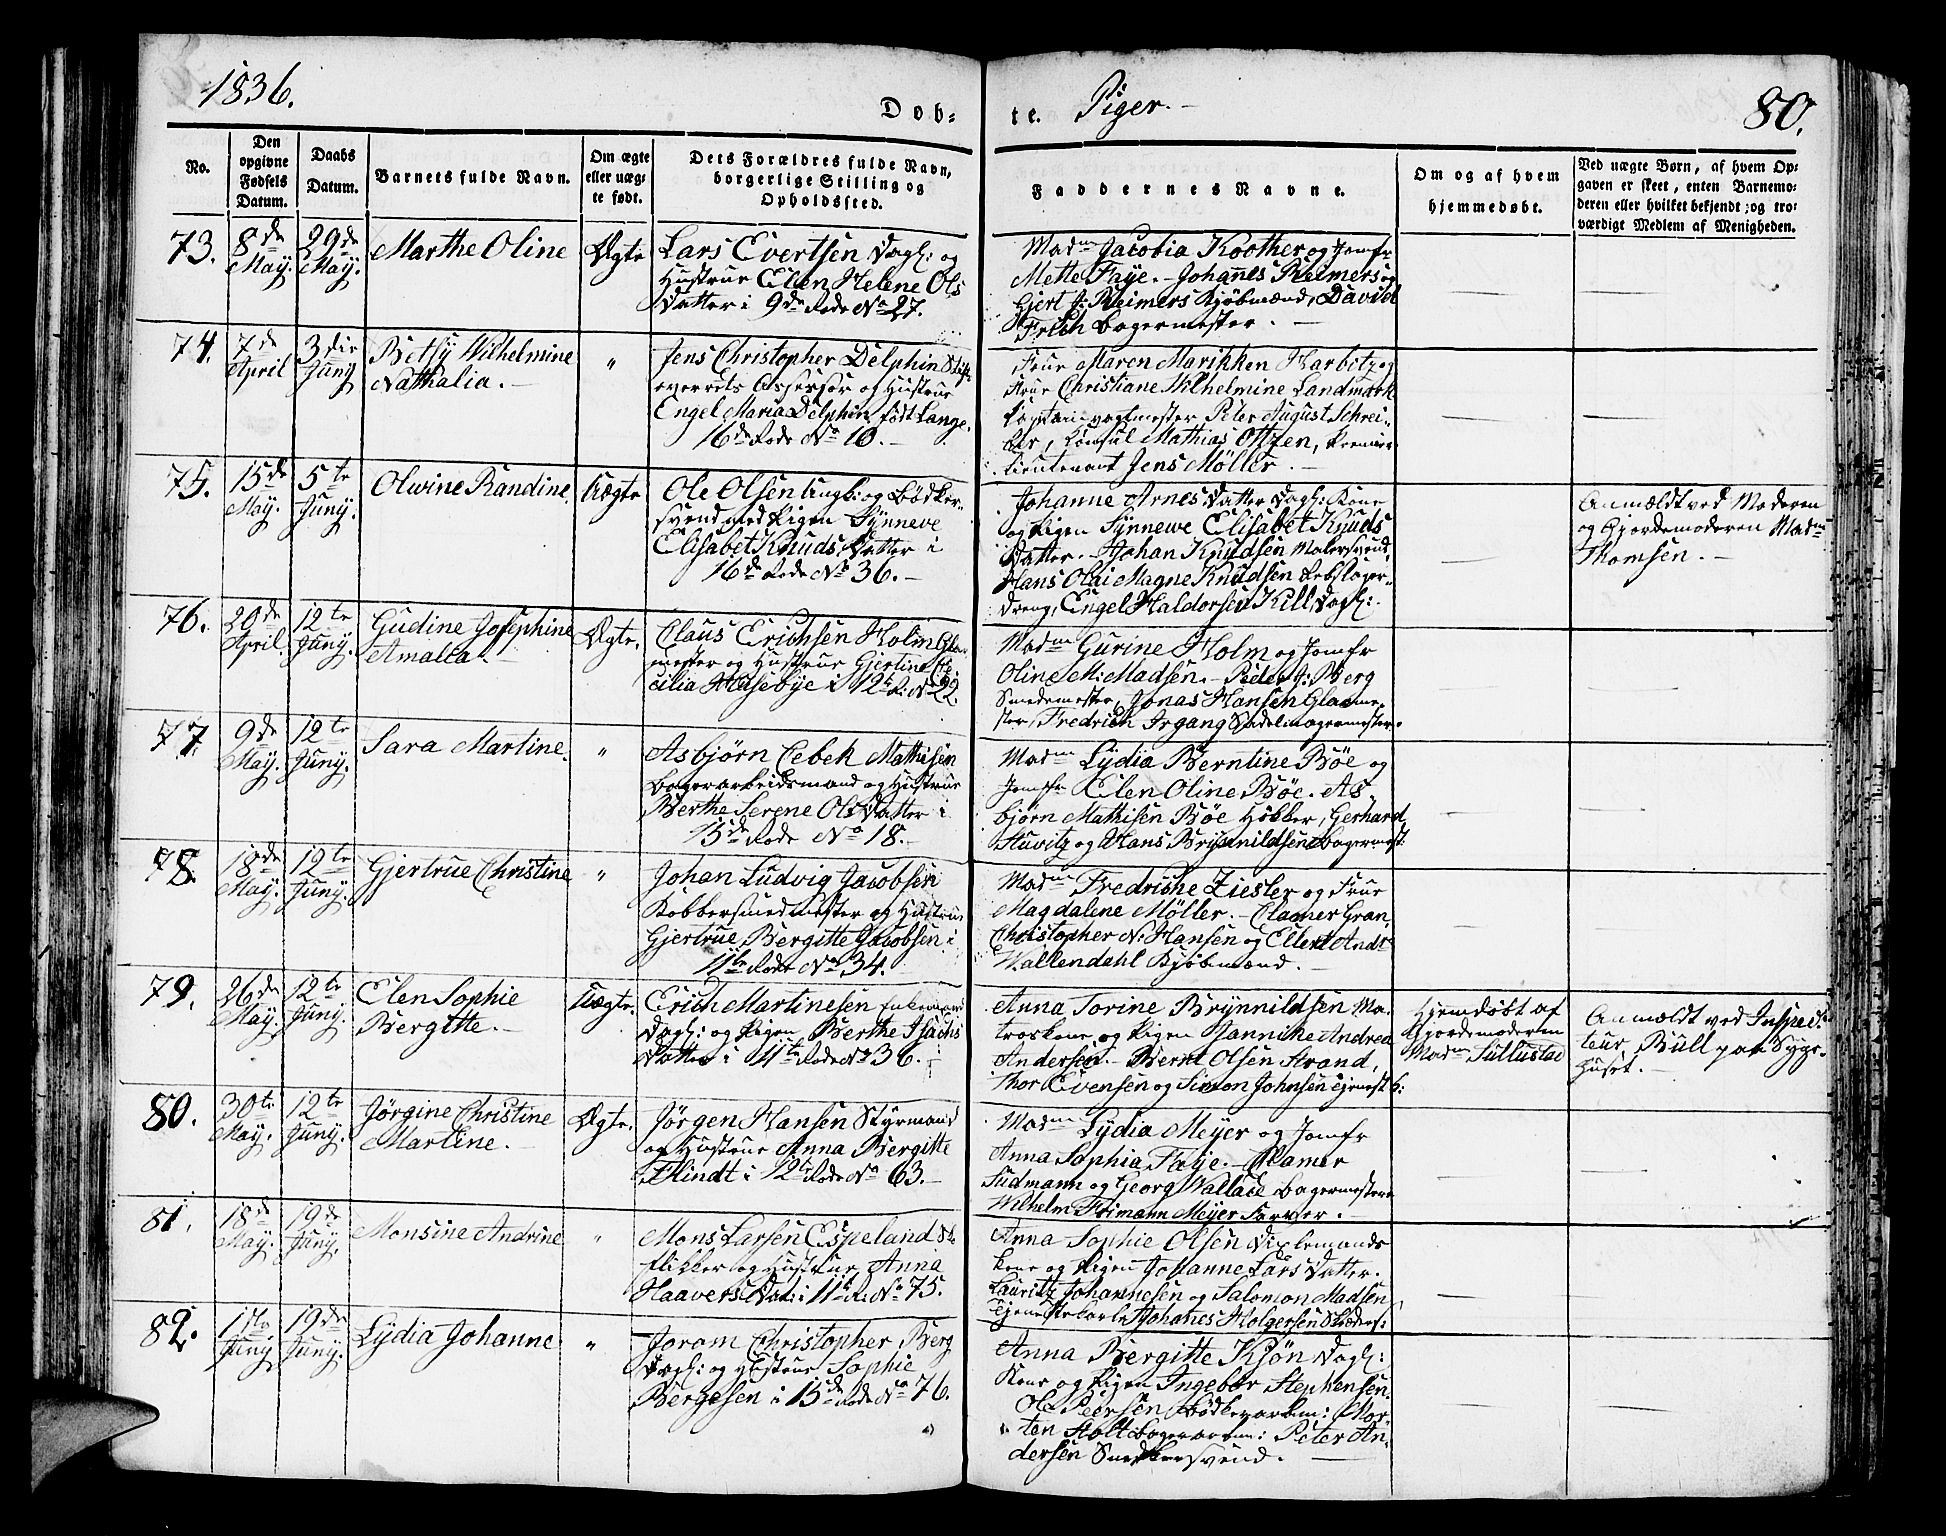 1836.
Døb-
te.
Piger.
80.
No.
Den opgivne Fødsels Datum.
Daabs Datum.
Barnets fulde Navn.
Om ægte eller uægte født.
Dets Forældres fulde Navn, borgerlige Stilling og Opholdssted.
Faddernes Navne.
Om og af hvem hjemmedøbt.
Ved uægte Børn, af hvem Opgaven er skeet, enten Barnemoderen eller hvilket bekjendt og troværdigt Medlem af Menigheden.
73. 8de May. 29de May. Marthe Oline Ægte
Lars Evertsen Dagl: og
Hustrue Elen Helene Ols
Datter i 9de Rode No 27.
Madm Jacobia Koother og Jomfr
Mette Faye. Johannes Reimers og
Gjert J: Reimers Kjøbmænd, David
Frich Bagermester.
74. 7de April 3die Juny Betsy Wilhelmine
Nathalia. "
Jens Christopher Delphin Stift
overrets Assessor og Hustrue
Engel Maria Delphin født Lange.
16de Rode No 10.
Frue Maren Marikken Harbitz og
Frue Christiane Wilhelmine Landmark
Peter August Schrei-
ber, Consul Mathias Oltzen, Premier
Lieutenant Jens Møller.
75. 15de May. 5te Juny. Olwine Randine. Uægte
Ole Olsen Ungk: og Bødker-
svend med Pigen Synneve
Elisabet Knuds Datter i
16de Rode No 36.
Johanne Arnes Datter Dagl: Kone
og Pigen Synnewe Elisabet Knuds
Datter. Johan Knudsen Malersvend,
Hans Olai Magne Knudsen Rebslager-
dreng, Engel Haldorsen Kill, Dagl:
Anmældt ved Moderen
og Gjordemoderen Madm
Thomsen.
76. 29de April. 12te Juny. Gudine Josephine
Amalia. Ægte.
Claus Erichsen Holm Glar
mester og Hustrue Gjertine Ce-
cilia Husebye i 12te R: No 22.
Madm Gurine Holm og Jomfr
Oline M: Madsen. Peder J: Berg
Smedemester, Jonas Hansen Glarme-
ster, Fredrich Irgang Sadelmagermester.
77. 9de May. 12te Juny. Sara Martine. "
Asbjørn Cebek Mathisen
Bagerarbeidsmand og Hustrue
Berthe Serene Ols Datter i
15de Rode No 18.
Madm Lydia Berntine Bøe og
Jomfr Elen Oline Bøe. As-
bjørn Mathisen Bøe Høkker, Gerhard
Huvitz og Hans Brynnildsen Bagermest:
78. 18de May. 12te Juny. Gjertrue Christine "
Johan Ludvig Jacobsen
Kobbersmedmester og Hustrue
Gjertrue Bergitte Jacobsen i
11te Rode No 34.
Madm Fredrikke Ziesler og Frue
Magdalene Møller. Clamer Gran,
Christopher N: Hansen og Ellert Andr
Wallendahl Kjøbmænd.
79. 26de May. 12te Juny. Elen Sophie
Bergitte. Uægte.
Erich Martinesen Enkemand
Dagl: og Pigen Berthe Isachs
Datter i 11te Rode No 36.
Anna Torine Brynnildsen Ma-
troskone og Pigen Jannike Andrea
Andersen. Bernt Olsen Strand,
Thor Evensen og Simon Johnsen
Hjemdøbt af
Gjordemoderen
Madm Sullustad
Anmældt ved Inspec-
teur Bull paa Syge-
huset.
80. 30te May. 12te Juny. Jørgine Christine
Martine. Ægte.
Jørgen Hansen Styrmand
og Hustrue Anna Bergitte
Flindt i 12te Rode No 63.
Madm Lydia Meyer og Jomfr
Anna Sophia Faye. Clamer
Sudmann og Georg Wallace Bagermestere
Wilhelm Frimann Meyer Farver.
81. 18de May. 19de Juny. Monsine Andrine "
Mons Larsen Espeland Sko
flikker og Hustrue Anna
Haavers Dat: i 11te R: No 75.
Anna Sophie Olsen
Kone og Pigen Johanne Lars Datter.
Lauritz Johannesen og Salomon Madsen
Johanes Holgersen
82. 1ste Juny 19de Juny. Lydia Johanne "
Joram Christopher Berg
Dagl: og Hustrue Sophie
Bergesen i 15de Rode No 76.
Anna Bergitte Kjøn Dagl:
Kone og Pigen Ingebor Stephensen.
Ole Peersen Bødkerarbm: Mor-
ten Holt Bagerarbm: Peter An-
dersen Snedkersvend.